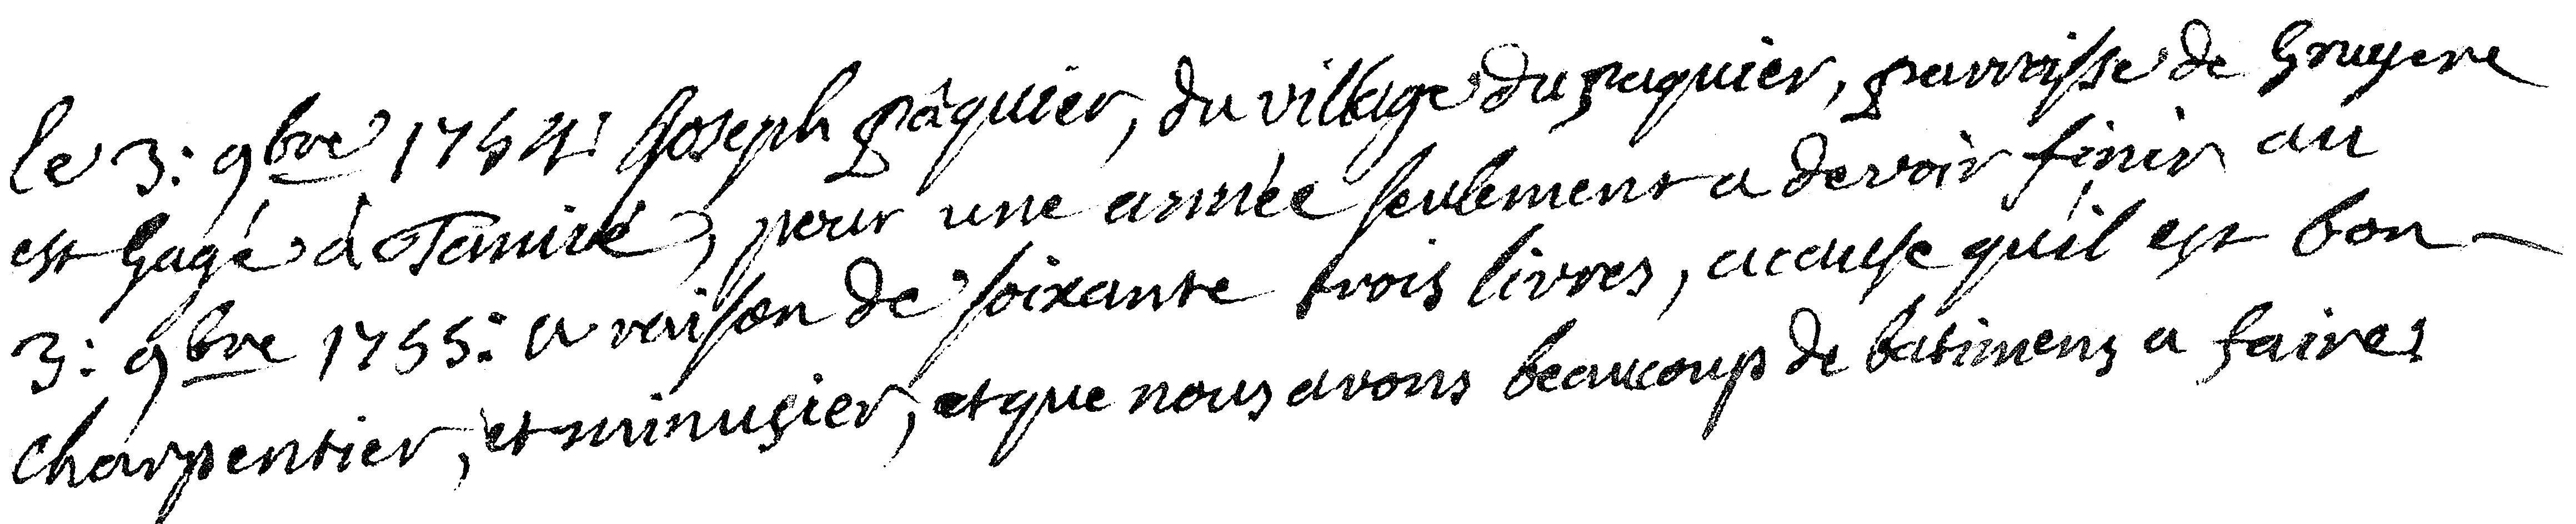 le 3: 9bre 1754: Joseph pâquier, du village du paquier, parroisse de Gruyere
est Gagé à Tamié, pour une année seulement a devoir finir au
3: 9bre 1755: a raison de soixante trois livres, acause qu'il est bon
charpentier, et minusier, et que nous avons beaucoup de batimens a faire: